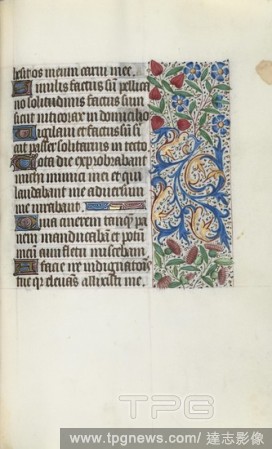 hest os meum carni mee.
Similis factus sum pellica
no solitudinis factus sum
sicut niticorax in domicilio
Vigilavi et factus sum si
cut passer solitarius in tecto
Tota die exprobrabant
michi inimici mei et qui
laudabant me adversum
me iurabant
Quia cinerem tanq̄ pa
nem manducabā et potū
meū cum fletu miscebam
A facie ire indignatiōis
tue q̄r elevās allisisti me.
TPG
www.tpgnews.com/ 達志影像